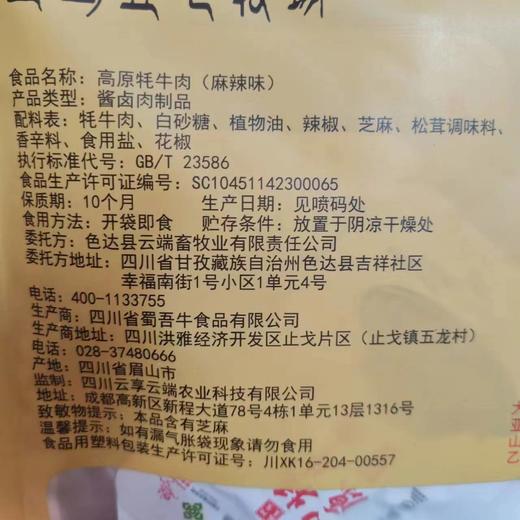 食品名称：高原牦牛肉（麻辣味）
产品类型：酱卤肉制品
配料表：牦牛肉、白砂糖、植物油、辣椒、芝麻、松茸调味料、
香辛料、食用盐、花椒
执行标准代号：GB/T 23586
食品生产许可证编号：SC10451142300065
保质期：10个月 生产日期：见喷码处
食用方法：开袋即食 贮存条件：放置于阴凉干燥处
委托方：色达县云端畜牧业有限责任公司
委托方地址：四川省甘孜藏族自治州色达县吉祥社区
幸福南街1号小区1单元4号
电话：400-1133755
生产商：四川省蜀吾牛食品有限公司
生产商地址：四川洪雅经济开发区止戈片区（止戈镇五龙村）
电话：028-37480666
产地：四川省眉山市
监制：四川云享云端农业科技有限公司
地址：成都高新区新程大道78号4栋1单元13层1316号
致敏物提示：本品含有芝麻
温馨提示：如有漏气胀袋现象请勿食用
食品用塑料包装生产许可证号：川XK16-204-00557